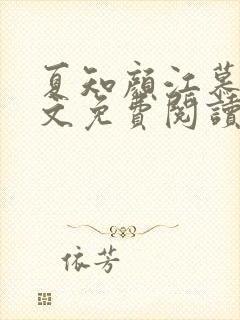 夏知顏江慕
文免費閱讀
依芳